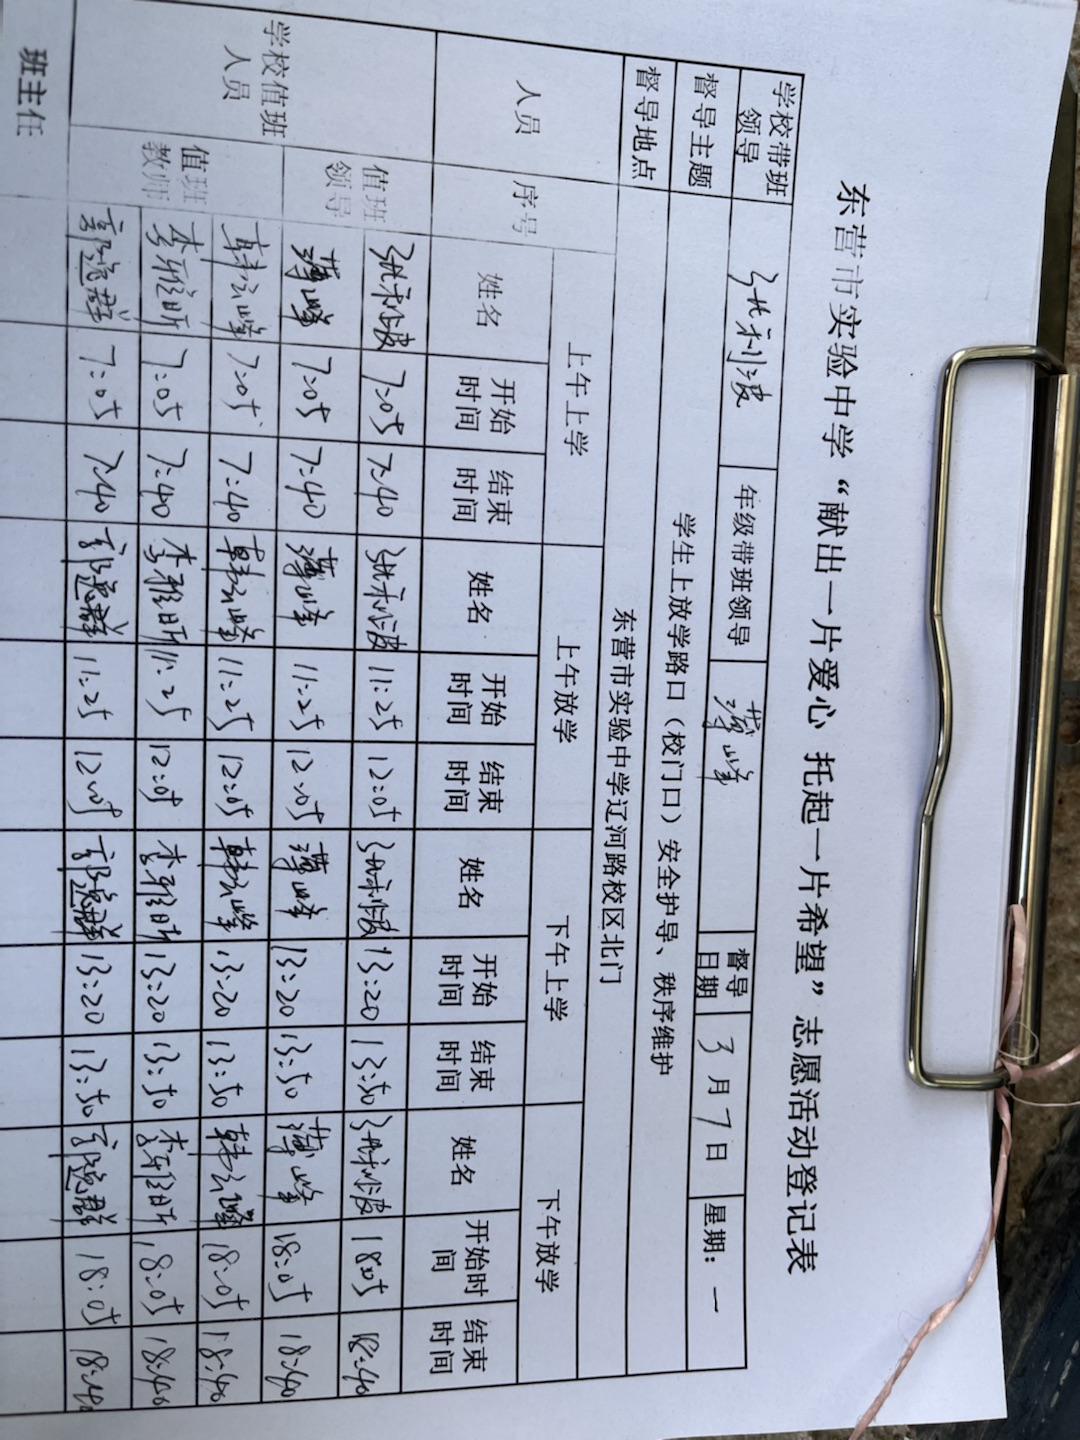 东营市实验中学“献出一片爱心 托起一片希望”志愿活动登记表
学校带班领导 张利波 年级带班领导 薄峰 督导日期 3月7日 星期：一
督导主题 学生上放学路口（校门口）安全护导、秩序维护
督导地点 东营市实验中学辽河路校区北门
人员 序号 上午上学 上午放学 下午上学 下午放学
姓名 开始时间 结束时间 姓名 开始时间 结束时间 姓名 开始时间 结束时间 姓名 开始时间 结束时间
学校值班人员 值班领导 张利波 7:05 7:40 张利波 11:25 12:05 张利波 13:20 13:50 张利波 18:05 18:40
薄峰 7:05 7:40 薄峰 11:25 12:05 薄峰 13:20 13:50 薄峰 18:05 18:40
值班教师 韩云峰 7:05 7:40 韩云峰 11:25 12:05 韩云峰 13:20 13:50 韩云峰 18:05 18:40
李雅昕 7:05 7:40 李雅昕 11:25 12:05 李雅昕 13:20 13:50 李雅昕 18:05 18:40
7:05 7:40 11:25 12:05 13:20 13:50 18:05 18:40
班主任